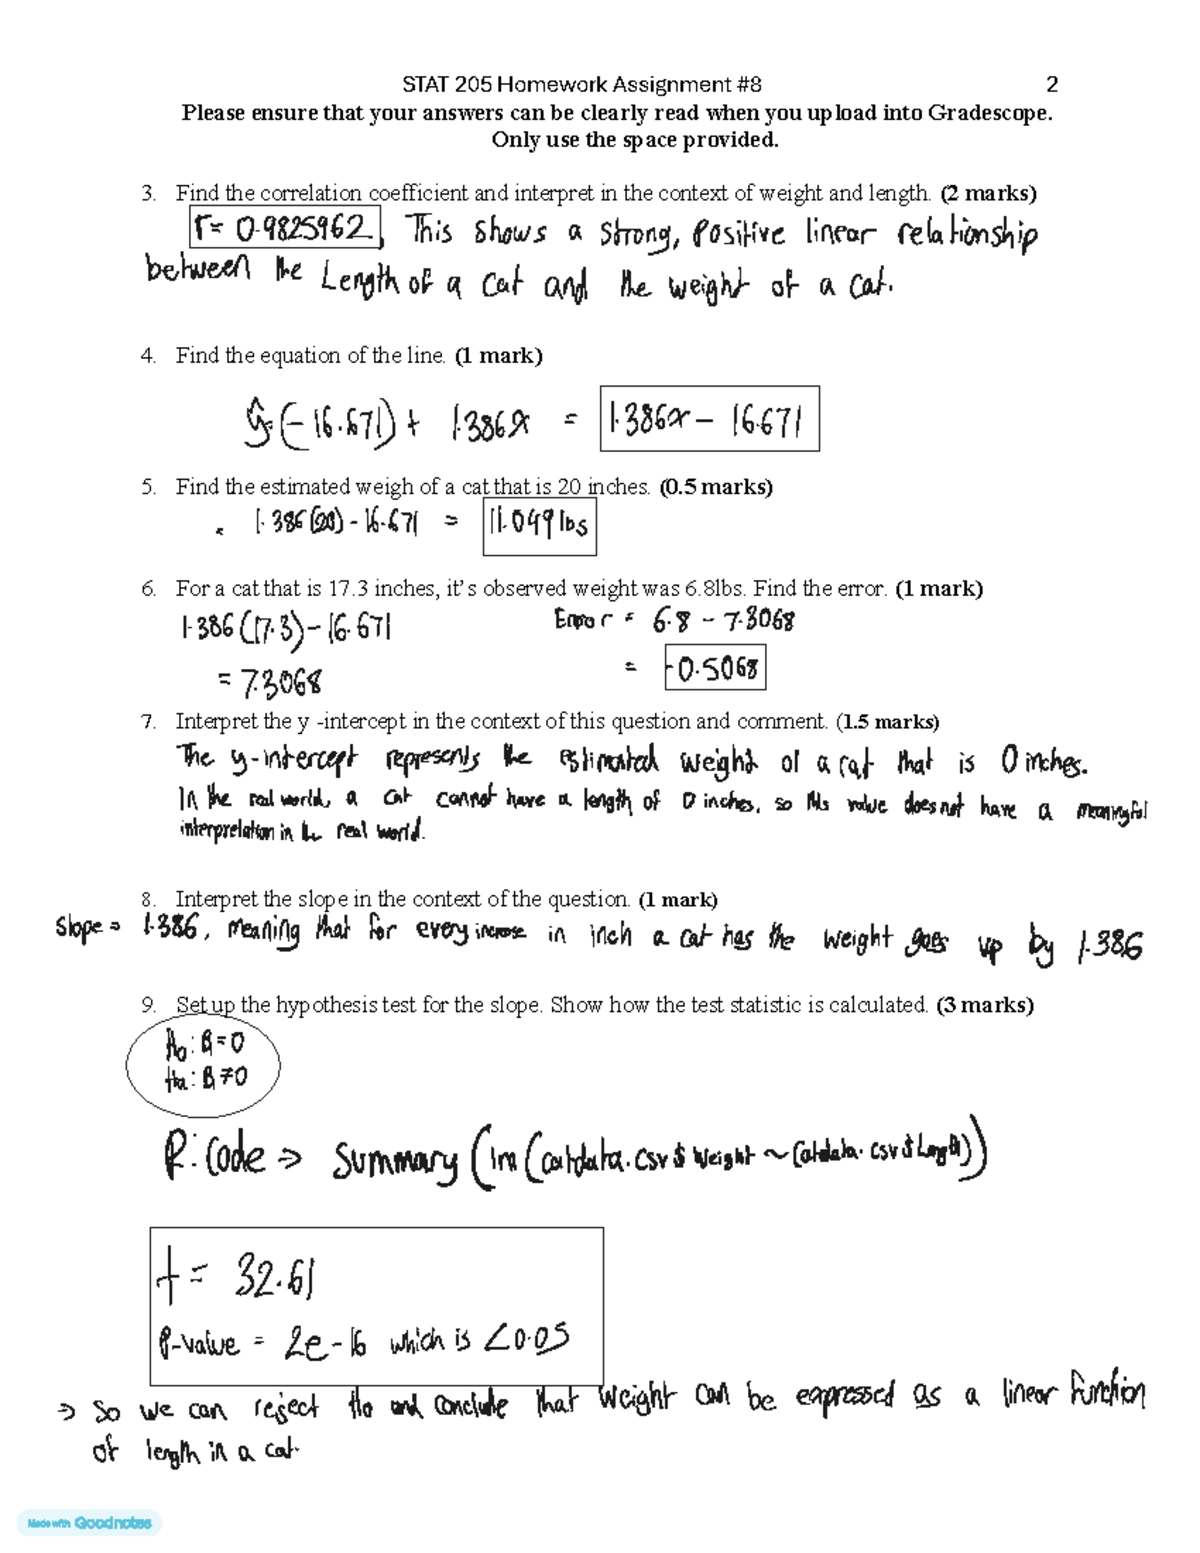 STAT 205 Homework Assignment #8 2
Please ensure that your answers can be clearly read when you upload into Gradescope.
Only use the space provided.
3. Find the correlation coefficient and interpret in the context of weight and length. (2 marks)
r= 0.9825962, This shows a strong, Positive linear relationship
between the Length of a cat and the weight of a cat.
4. Find the equation of the line. (1 mark)
ŷ=(-16.671) + 1.386x = 1.386x - 16.671
5. Find the estimated weigh of a cat that is 20 inches. (0.5 marks)
= 1.386(20) - 16.671 = 11.049 lbs
6. For a cat that is 17.3 inches, it's observed weight was 6.8lbs. Find the error. (1 mark)
1.386(17.3) - 16.671 Error = 6.8 - 7.3068
= 7.3068 = -0.5068
7. Interpret the y -intercept in the context of this question and comment. (1.5 marks)
The y-intercept represents the estimated weight of a cat that is 0 inches.
In the real world, a cat cannot have a length of 0 inches, so this value does not have a meaningful
interpretation in the real world.
8. Interpret the slope in the context of the question. (1 mark)
Slope = 1.386, meaning that for every increase in inch a cat has the weight goes up by 1.386
9. Set up the hypothesis test for the slope. Show how the test statistic is calculated. (3 marks)
Ho: B=0
Ha: B≠0
R: Code => Summary (lm (catdata.csv$Weight ~ Catdata.csv$Length))
t = 32.61
P-value = 2e-16 which is <0.05
=> So we can reject Ho and conclude that weight can be expressed as a linear function
of length in a cat.
Made with Goodnotes